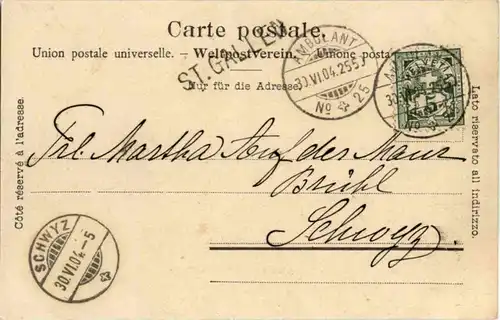 Carte postale.
Union postale universelle. – Weltpostverein. – Unione postale
ST. GALLEN
Nur für die Adresse.
AMBULANT
30.VI.04.255
No 25
HELVETIA
5
Côté réservé à l'adresse.
Lato riservato all indirizzo.
Frl. Martha Auf der Maur
Brühl
Schwyz.
SCHWYZ
30.VI.04.–5